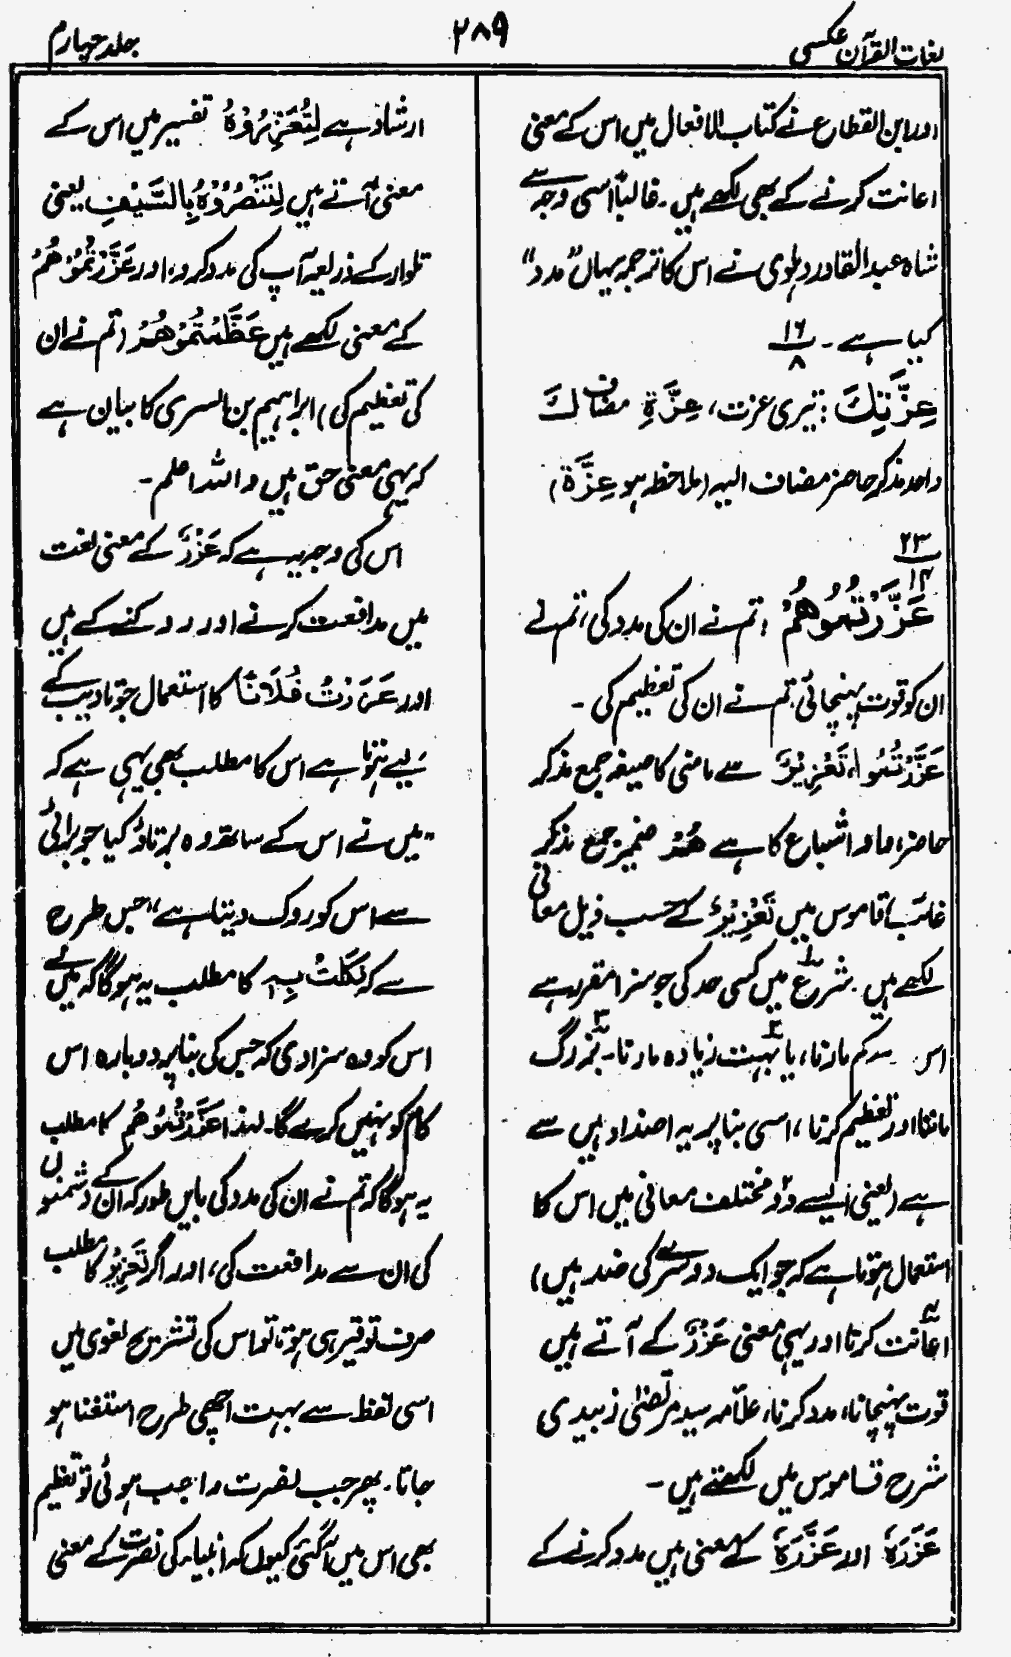 لغات القرآن عکسی
۲۸۹
جلد چہارم
اور ابن القطاع نے کتاب الافعال میں اس کے معنی
اعانت کرنے کے بھی لکھے ہیں۔ غالباً اسی وجہ سے
شاہ عبدالقادر دہلوی نے اس کا ترجمہ یہاں "مدد"
کیا ہے۔ ۱۶/۸
عِزَّتِكَ : تیری عزت، عِزَّةِ مضاف كَ
واحد مذکر حاضر مضاف الیہ (ملاحظہ ہو عِزَّة)
۲۳/۱۴
عَزَّرْتُمُوهُمْ : تم نے ان کی مدد کی، تم نے
ان کو قوت پہنچائی تم نے ان کی تعظیم کی۔
عَزَّرْتُمُوا، تَعْزِيْرٌ سے ماضی کا صیغہ جمع مذکر
حاضر، واو اشباع کا ہے هُمْ ضمیر جمع مذکر
غائب، قاموس میں تَعْزِيْرٌ کے حسب ذیل معانی
لکھے ہیں۔ شرع میں کسی حد کی جو سزا مقرر ہے
اس سے کم مارنا، یا بہت زیادہ مارنا۔ بزرگ
ماننا اور تعظیم کرنا، اسی بنا پر یہ اضداد میں سے
ہے (یعنی ایسے دو مختلف معانی میں اس کا
استعمال ہوتا ہے کہ جو ایک دوسرے کی ضد ہیں)
اعانت کرنا اور یہی معنی عَزْرٌ کے آتے ہیں
قوت پہنچانا، مدد کرنا، علامہ سید مرتضیٰ زبیدی
شرح قاموس میں لکھتے ہیں۔
عَزَرَهٗ اور عَزَّرَهٗ کے معنی ہیں مدد کرنے کے
ارشاد ہے لِتُعَزِّرُوْهُ تفسیر میں اس کے
معنی آتے ہیں لِتَنْصُرُوْهُ بِالسَّيْفِ یعنی
تلوار کے ذریعہ آپ کی مدد کرو، اور عَزَّرْتُمُوْهُمْ
کے معنی لکھے ہیں عَظَّمْتُمُوْهُمْ (تم نے ان
کی تعظیم کی) ابراہیم بن السری کا بیان ہے
کہ یہی معنی حق ہیں واللہ اعلم۔
اس کی وجہ یہ ہے کہ عَزْرٌ کے معنی لغت
میں مدافعت کرنے اور روکنے کے ہیں
اور عَزَرْتُ فُلَانًا کا استعمال جو تادیب کے
لیے ہوتا ہے اس کا مطلب بھی یہی ہے کہ
"میں نے اس کے ساتھ وہ برتاؤ کیا جو برائی
سے اس کو روک دیتا ہے" جس طرح
سے کہ نَكَلْتُ بِهٖ کا مطلب یہ ہوگا کہ میں نے
اس کو وہ سزا دی کہ جس کی بنا پر دوبارہ اس
کام کو نہیں کرے گا۔ لہٰذا عَزَّرْتُمُوْهُمْ کا مطلب
یہ ہوگا کہ تم نے ان کی مدد کی بایں طور کہ ان کے دشمنوں
کی ان سے مدافعت کی، اور اگر تَعْزِيْرٌ کا مطلب
صرف توقیر ہی ہوتا تو اس کی تشریح لغوی میں
اسی لفظ سے بہت اچھی طرح استغنا ہو
جاتا۔ پھر جب نصرت واجب ہوئی تو تعظیم
بھی اس میں آگئی کیوں کہ انبیاء کی نصرت کے معنی